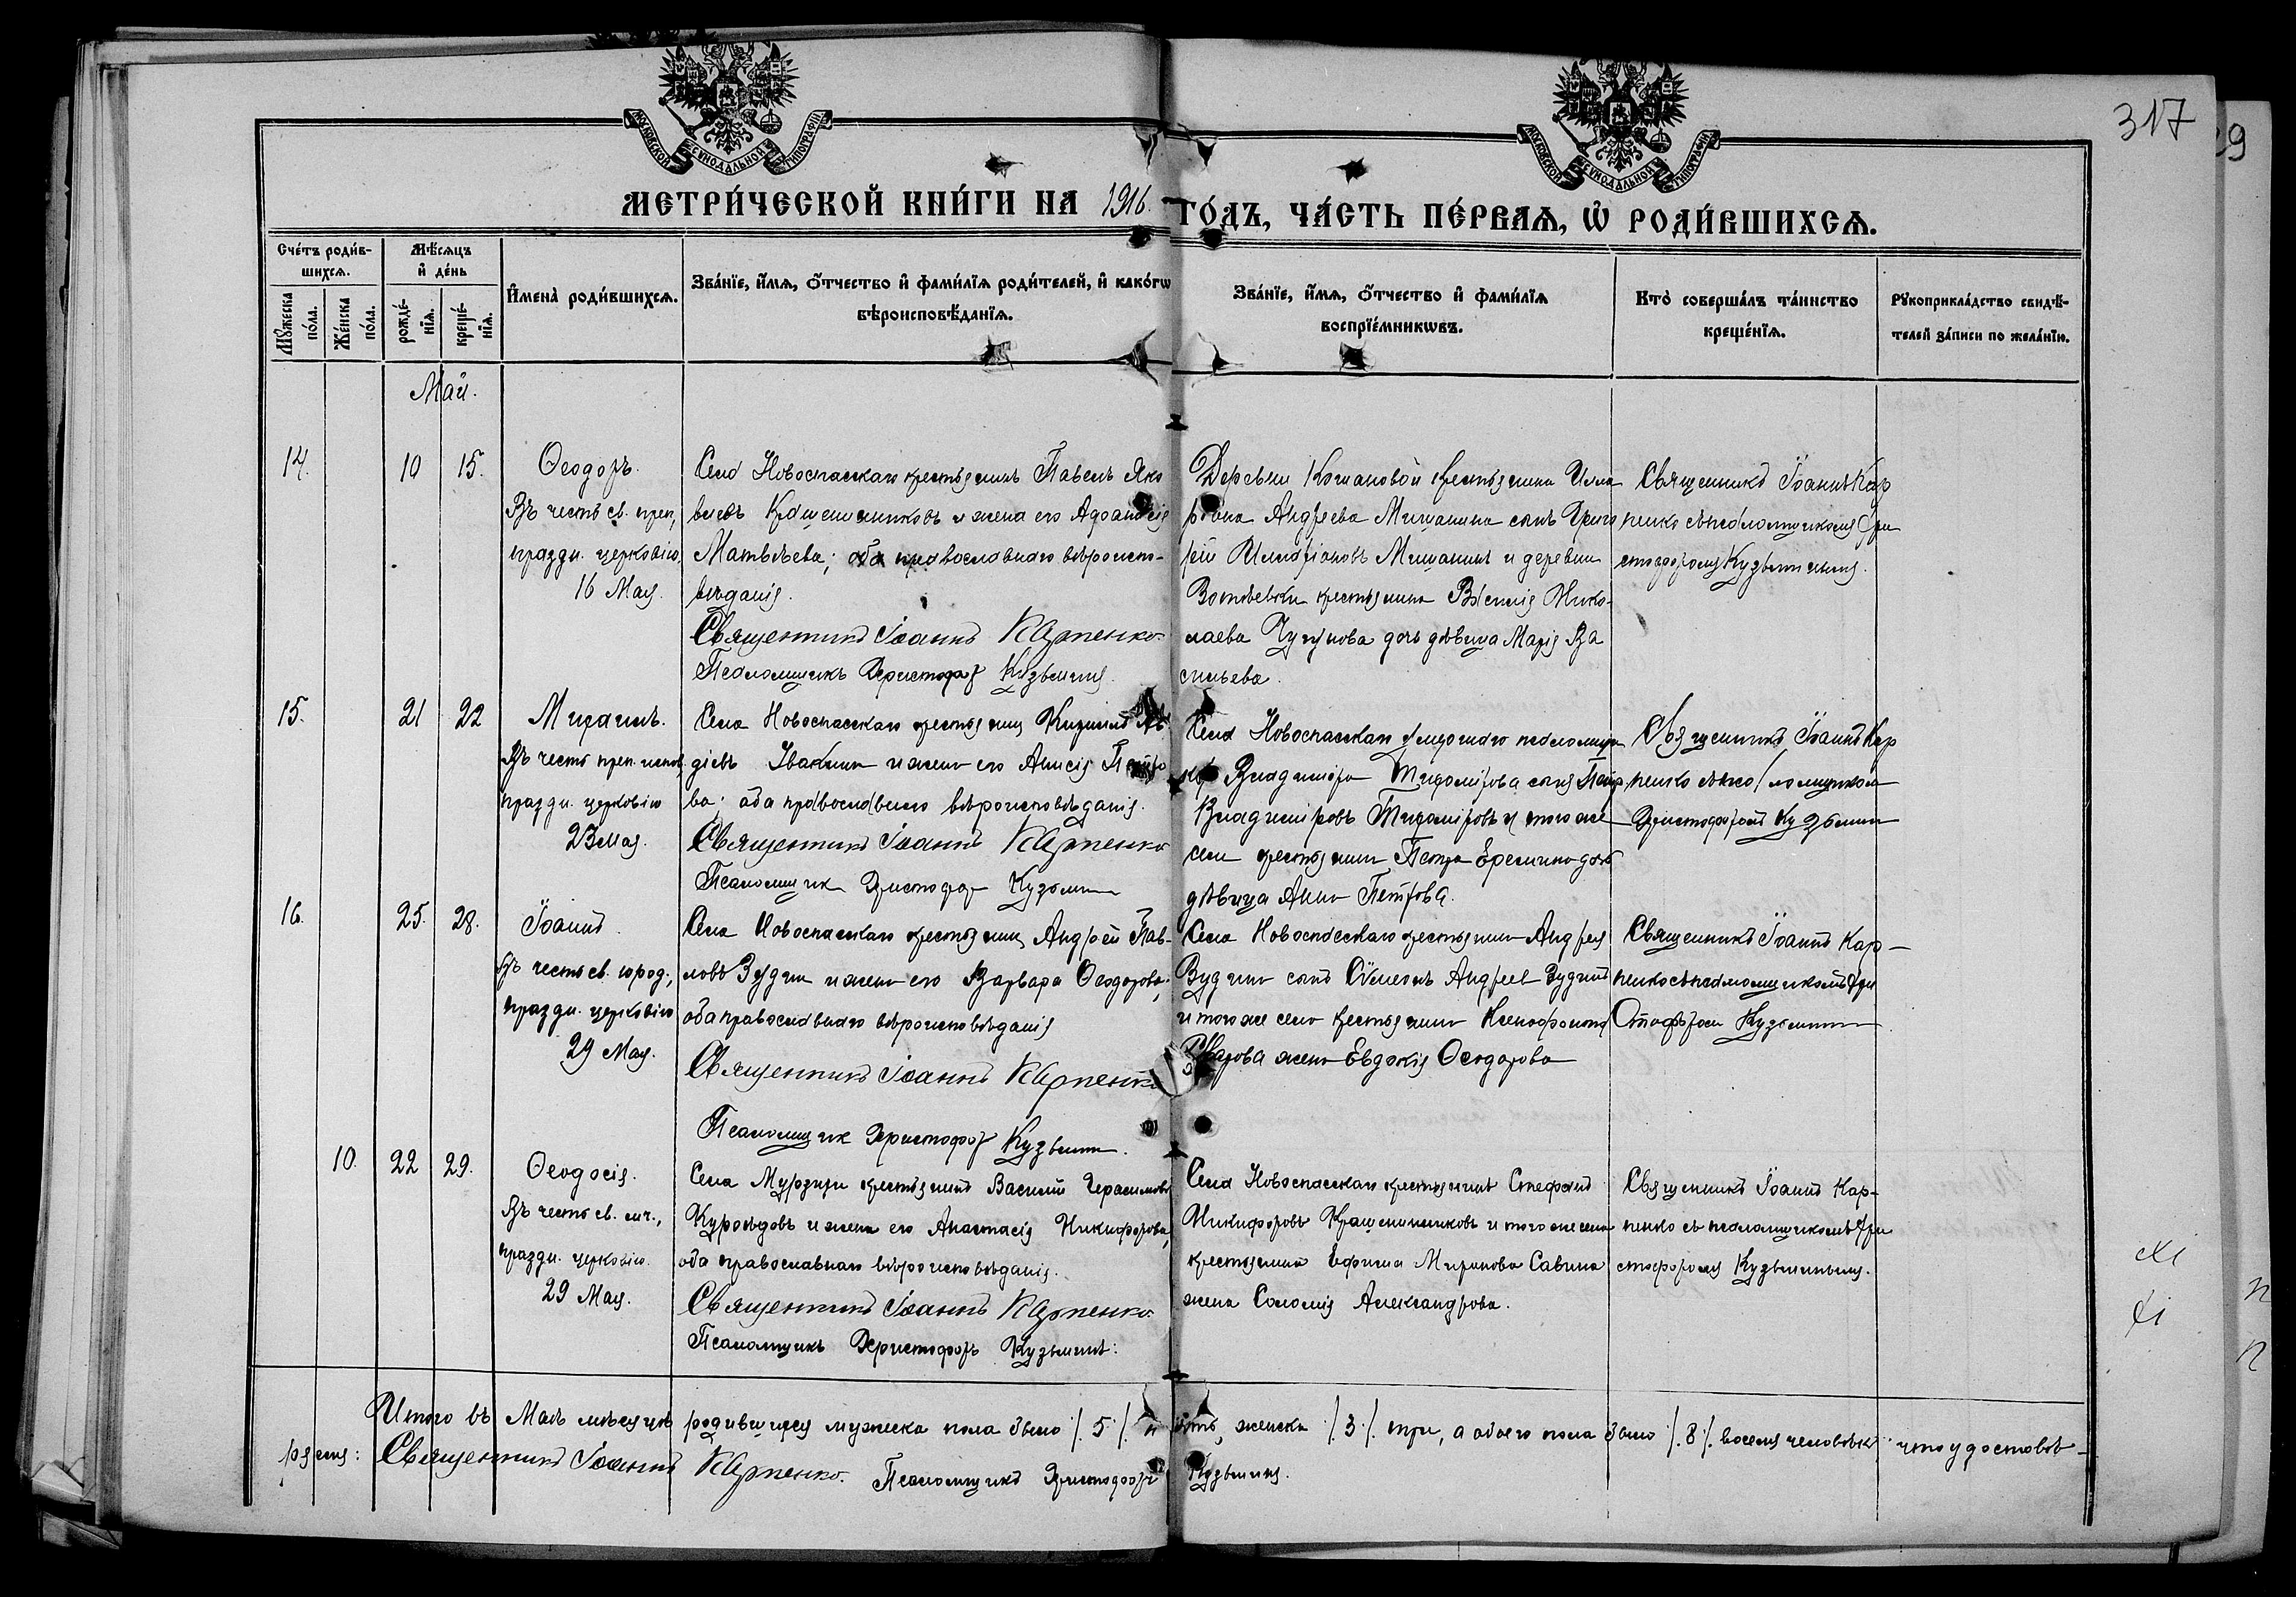 317
29
МОСКОВСКОЙ СУНОДАЛЬНОЙ ТИПОГРАФІИ
МОСКОВСКОЙ СУНОДАЛЬНОЙ ТИПОГРАФІИ
МЕТРИ́ЧЕСКОЙ КНИ́ГИ НА 1916. ГО́ДЪ, ЧА́СТЬ ПЕ́РВАѦ, Ѡ҆ РОДИ́ВШИХСѦ.
Сче́тъ роди́в-
шихсѧ.
Мꙋжеска по́ла.
Же́нска по́ла.
Мѣ́сѧцъ
и҆ де́нь
рожде́-
нїѧ.
креще́-
нїѧ.
И҆мена̀ роди́вшихсѧ.
Зва́нїе, и҆́мѧ, ѻ҆́тчество и҆ фами́лїѧ роди́телей, и҆ како́гѡ
вѣроисповѣ́данїѧ.
Зва́нїе, и҆́мѧ, ѻ҆́тчество и҆ фами́лїѧ
воспрїе́мникѡвъ.
Кто̀ соверша́лъ та́инство
креще́нїѧ.
Рꙋкоприкла́дство свидѣ́-
телей за́писи по жела́нїю.
Май.
14. 10 15.
Ѳеодоръ.
Въ честь св. преп,
праздн. церковію,
16 Мая.
Села Новоспасскаго крестьянинъ Павелъ Яко
влевъ Крашенинниковъ и жена его
Матвѣева; оба православнаго вѣроиспо-
вѣданія.
Священникъ Іоаннъ Карпенко.
Псаломщикъ Христофоръ Кузьминъ.
Деревни крестьянина Илла
ріона Андреева Мишанина сынъ Григо
рій Илларіоновъ Мишанинъ и деревни
крестьянина Василія Нико-
лаева Чугунова дочь дѣвица Марія Ва
сильева.
Священникъ Іоаннъ Кар
пенко съ псаломщикомъ Хри
стофоромъ Кузьминымъ.
15. 21 22
Михаилъ.
Въ честь преп. испов.
праздн. церковію
23 Мая.
Села Новоспасскаго крестьянинъ Кириллъ Ав
діевъ Ивакинъ и жена его Анисія Петро
ва; оба православнаго вѣроисповѣданія.
Священникъ Іоаннъ Карпенко
Псаломщикъ Христофоръ Кузьминъ
Села Новоспасскаго умершаго псаломщи
ка Владиміра Тихомірова сынъ Петръ
Владиміровъ Тихоміровъ и того же
села крестьянина Петра Еремина дочь
дѣвица Анна Петрова.
Священникъ Іоаннъ Кар
пенко съ псаломщикомъ
Христофоромъ Кузьминым
16. 25. 28.
Іоаннъ.
Въ честь св. юрод.,
праздн. церковію
29 Мая.
Села Новоспасскаго крестьянинъ Андрей Пав-
ловъ Зудинъ и жена его Варвара Ѳеодорова;
оба православнаго вѣроисповѣданія
Священникъ Іоаннъ Карпенко
Псаломщик Христофор Кузьмин.
Села Новоспасскаго крестьянина Андрея
Зудина сынъ Сѵмеонъ Андреев Зудинъ
и того же села крестьянина Ксенофонта
жена Евдокія Ѳеодорова
Священникъ Іоаннъ Кар-
пенко съ псаломщикомъ Хри
стофором Кузьминым.
10. 22 29.
Ѳеодосія.
Въ честь св. муч.,
праздн. церковію.
29 Мая.
Села крестьянинъ Василій Герасимовъ
Куроѣдовъ и жена его Анастасія Никифорова,
оба православнаго вѣроисповѣданія.
Священникъ Іоаннъ Карпенко.
Псаломщикъ Христофоръ Кузьминъ.
Села Новоспасскаго крестьянинъ Стефанъ
Никифоровъ Крашенинниковъ и того же села
крестьянина Ефима Миронова Савина
жена Соломія Александрова.
Священникъ Іоаннъ Кар-
пенко съ псаломщикомъ Хри
стофоромъ Кузьминымъ.
Итого въ Маѣ мѣсяцѣ родившихся мужеска пола было /. 5 /. пять, женска /. 3 /. три, а обоего пола было /. 8 /. восемь человѣкъ что удостовѣ-
ряемъ: Священникъ Іоаннъ Карпенко. Псаломщикъ Христофоръ Кузьминъ.